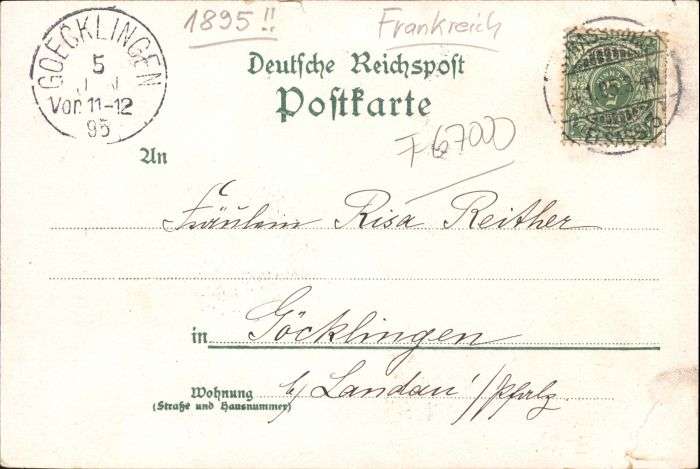 1895!!
Frankreich
GOECKLINGEN
5
Vor. 11-12
95
Deutsche Reichspost
Postkarte
F 67000
An
Fräulein Risa Reither
in Göcklingen
b/ Landau / Pfalz
Wohnung
(Straße und Hausnummer)